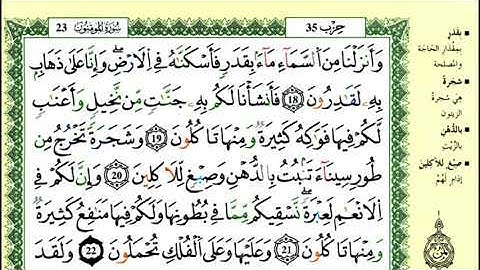 23 سُورَةُ الْمُومِنُونَ
حِزْب 35
وَأَنزَلْنَا مِنَ اَ۬لسَّمَآءِ مَآءَۢ بِقَدَرٖ فَأَسْكَنَّٰهُ فِے اِ۬لَارْضِۖ وَإِنَّا عَلَىٰ ذَهَابِۢ
بِهِۦ لَقَٰدِرُونَۖ 18 فَأَنشَأْنَا لَكُم بِهِۦ جَنَّٰتٖ مِّن نَّخِيلٖ وَأَعْنَٰبٖ
لَّكُمْ فِيهَا فَوَٰكِهُ كَثِيرَةٞ وَمِنْهَا تَاكُلُونَ 19 وَشَجَرَةٗ تَخْرُجُ مِن
طُورِ سِينَآءَ تَنۢبُتُ بِالدُّهْنِ وَصِبْغٖ لِّلَاكِلِينَۖ 20 وَإِنَّ لَكُمْ فِے
اِ۬لَانْعَٰمِ لَعِبْرَةٗۖ نَّسْقِيكُم مِّمَّا فِے بُطُونِهَا وَلَكُمْ فِيهَا مَنَٰفِعُ كَثِيرَةٞ
وَمِنْهَا تَاكُلُونَ 21 وَعَلَيْهَا وَعَلَى اَ۬لْفُلْكِ تُحْمَلُونَۖ 22 وَلَقَدَ
بِقَدَرٍ
بِمِقْدَارِ الحَاجَة
وَالمَصْلَحَة
شَجَرَةً
هِيَ شَجَرَةُ
الزَّيْتُون
بِالدُّهْنِ
بِالزَّيْتِ
صِبْغٍ لِلآكِلِينَ
إِدَامٍ لَهُمْ